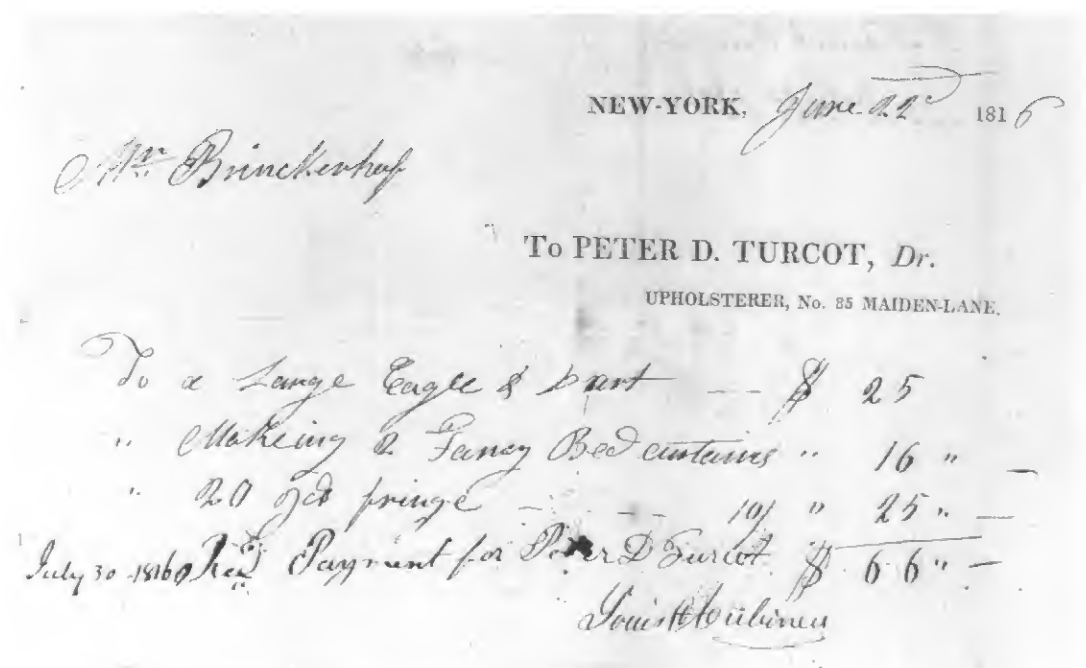 NEW-YORK, June 22d 1816
Mr Brinckerhof
To PETER D. TURCOT, Dr.
UPHOLSTERER, No. 85 MAIDEN-LANE.
To a Large Eagle & Dart — — $ 25
" Makeing 2 Fancy Bed curtains " 16 " —
" 20 yds fringe — — — 10/ " 25 " —
July 30 1816 Recd Payment for Peter D Turcot $ 66 " —
Louis